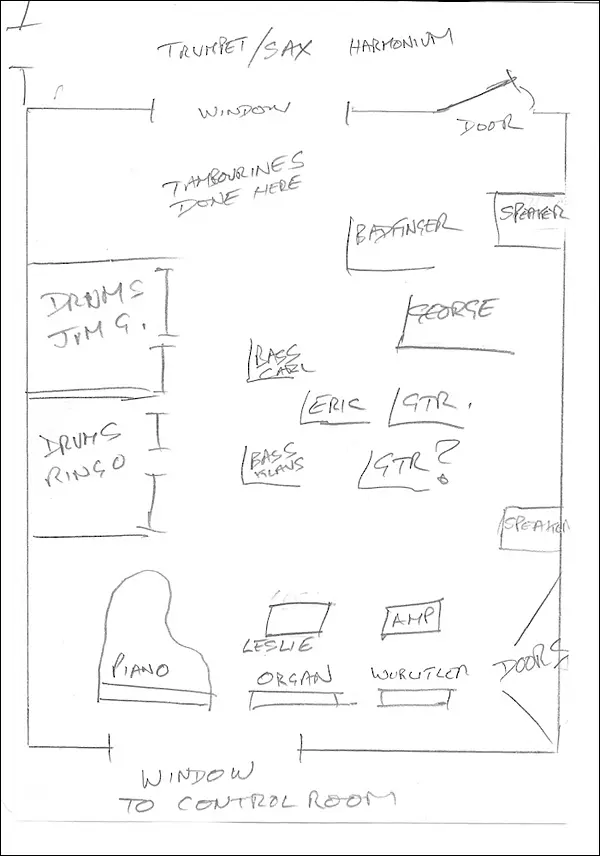 TRUMPET/SAX HARMONIUM
WINDOW
DOOR
TAMBOURINES
DONE HERE
SPEAKER
BADFINGER
DRUMS
JIM G.
GEORGE
BASS
CARL
ERIC
GTR.
DRUMS
RINGO
BASS
KLAUS
GTR?
SPEAKER
PIANO
LESLIE
AMP
ORGAN
WURLITZER
DOORS
WINDOW
TO CONTROL ROOM